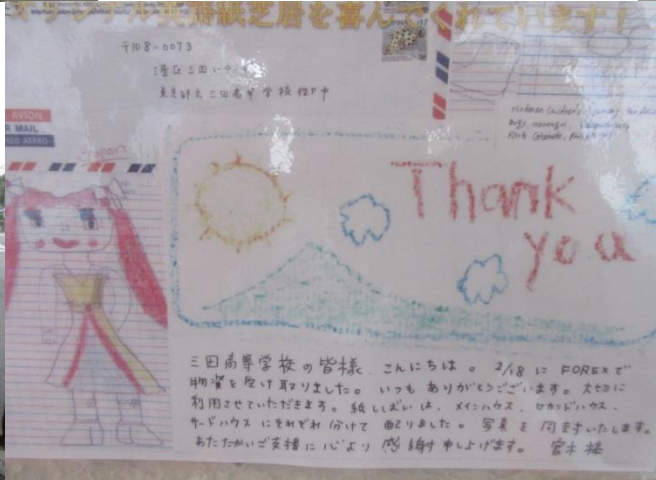 紙芝居を喜んでくれています!
〒108-0073
港区三田
東京都立三田高等学校
AVION
R MAIL
REO AEREO
Japan
Thank
you
三田高等学校の皆様、こんにちは。2/18にFOREXで
物資を受け取りました。いつもありがとうございます。大切に
利用させていただきます。紙しばいは、メインハウス、セカンドハウス、
サードハウスにそれぞれ分けて配りました。写真を同封いたします。
あたたかいご支援に心より感謝申し上げます。